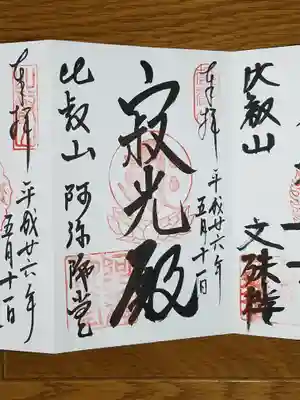 比叡山 文殊楼
奉拝
平成廿六年
五月十一日
寂光殿
比叡山 阿弥陀堂
奉拝
平成廿六年
五月十一日